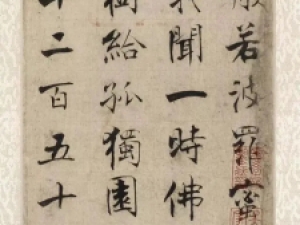 般若波羅蜜
我聞一時佛
樹給孤獨園
千二百五十